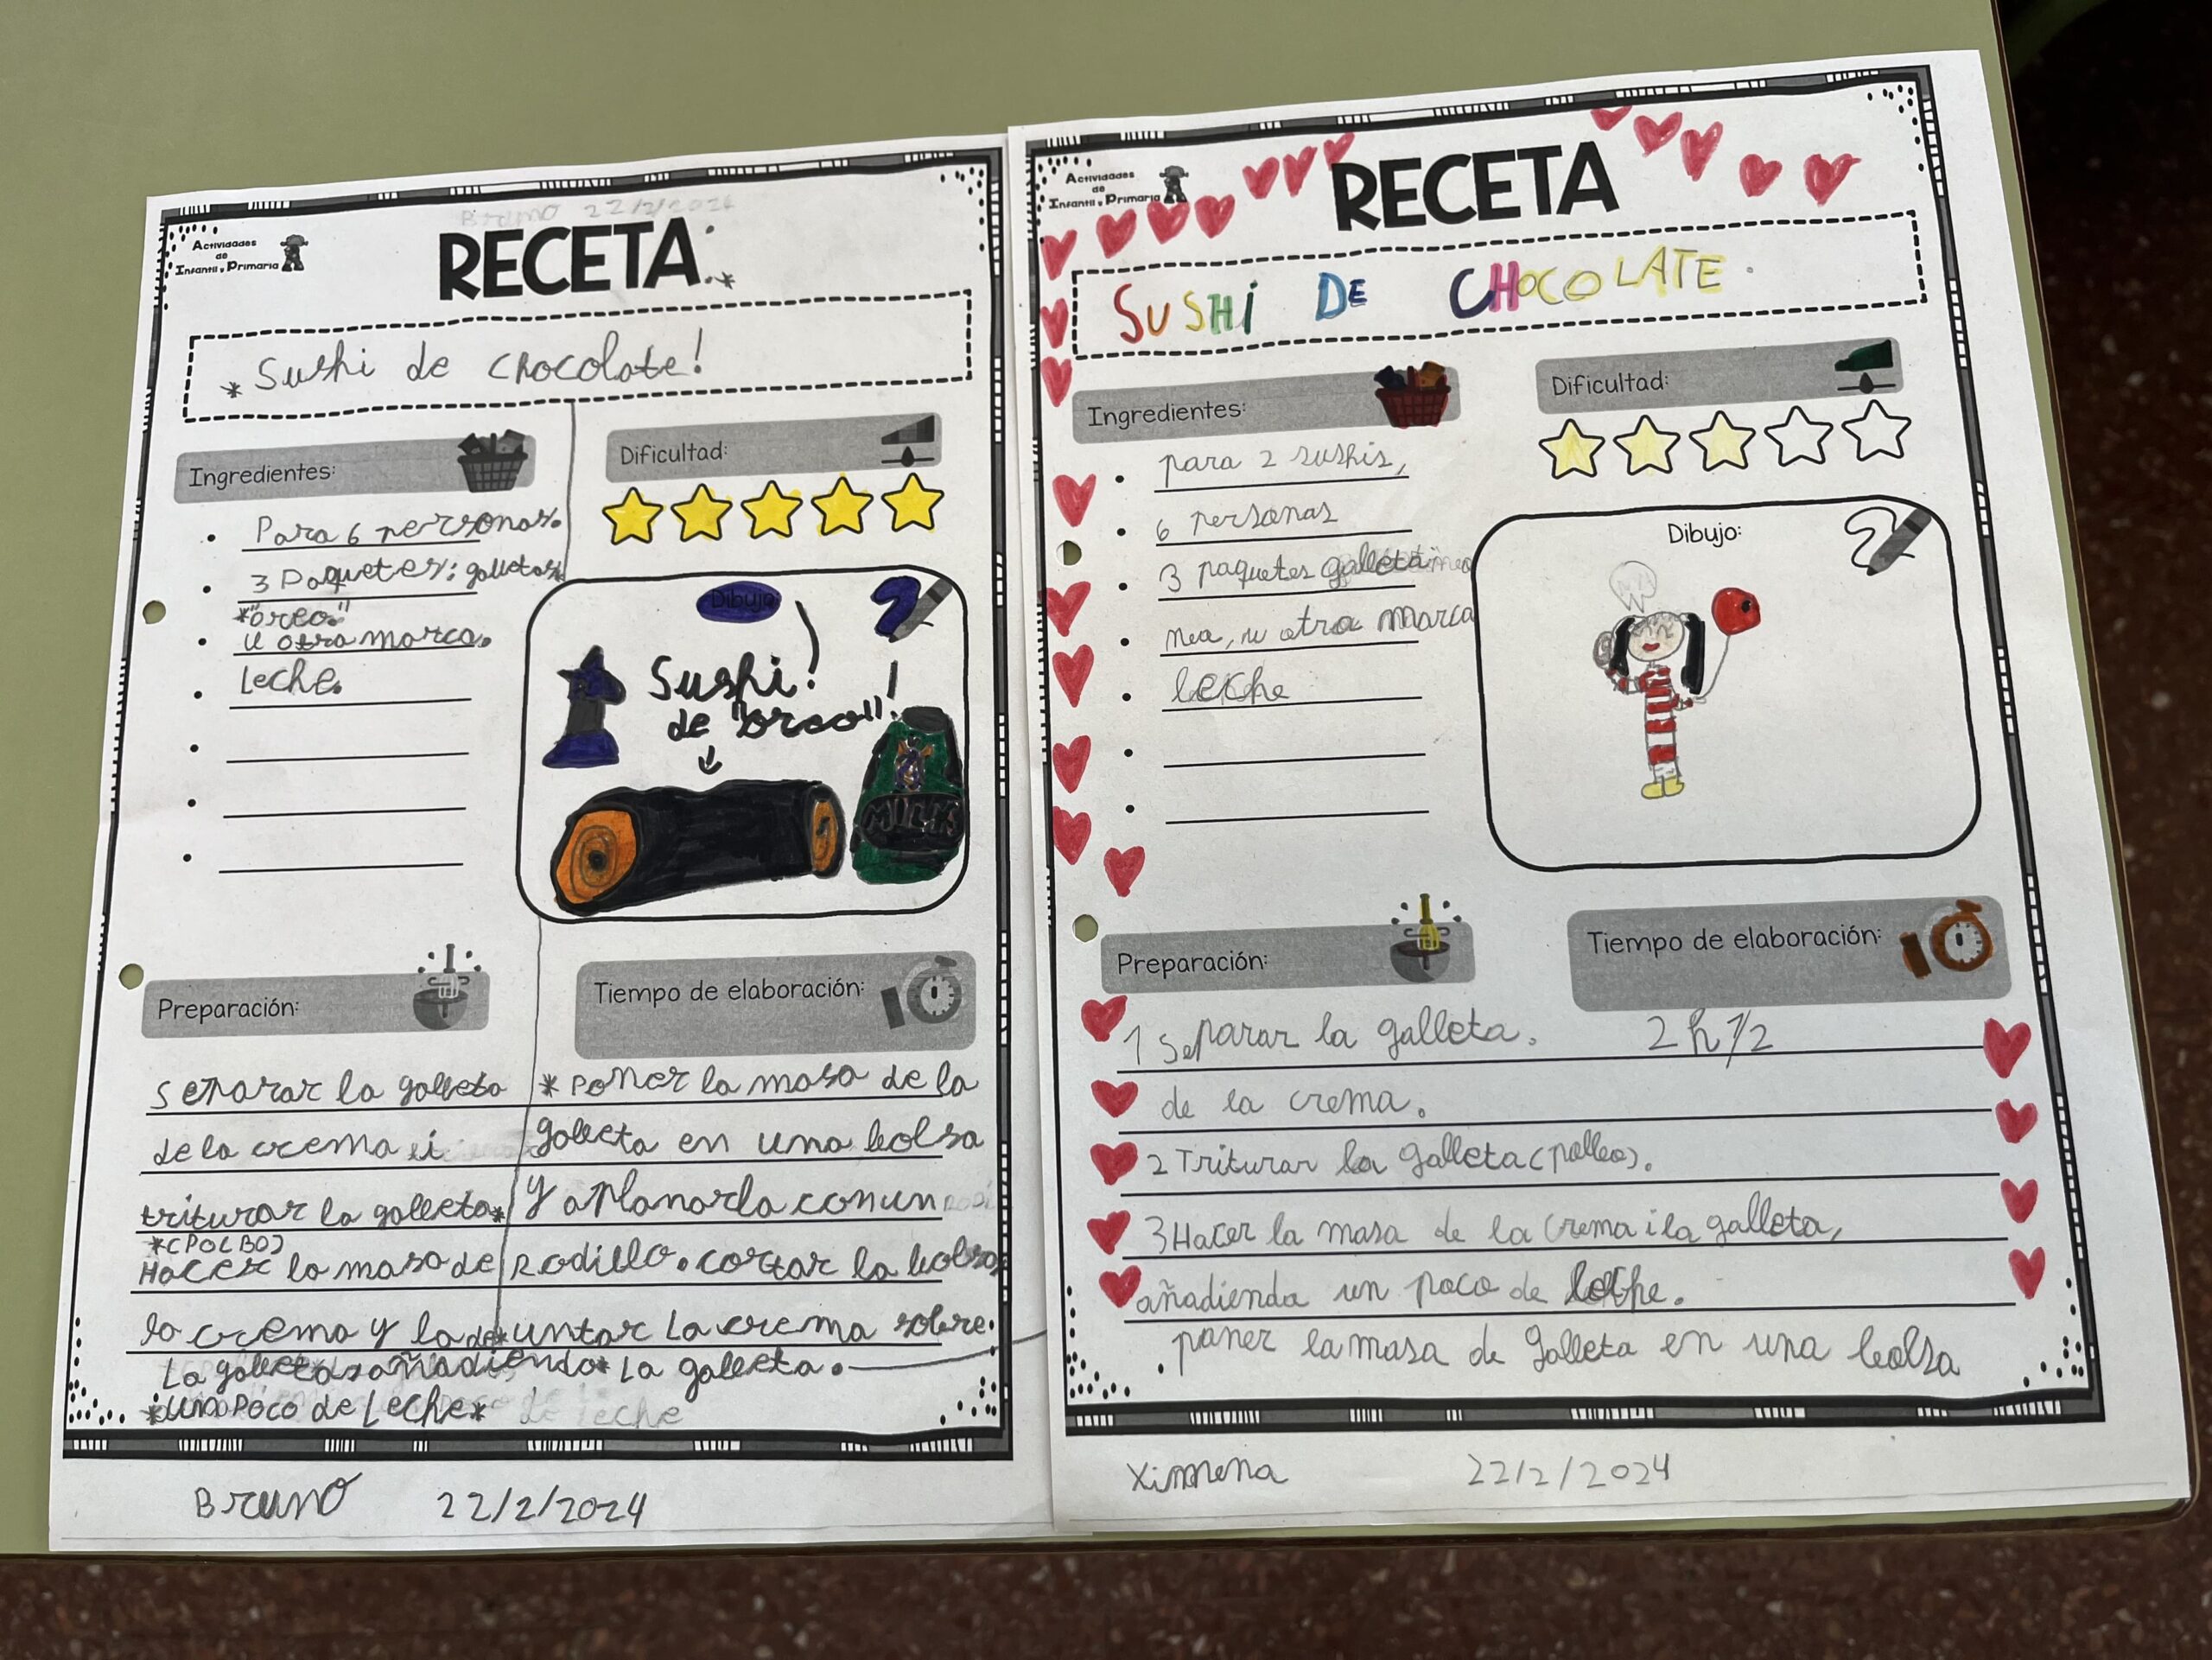 Bruno 22/2/2024
Actividades
de
Infantil y Primaria
RECETA:
* Sushi de chocolate!
Ingredientes:
Dificultad:
Para 6 personas.
3 Paquetes: galletas*
*"oreo."
u otra marca.
Leche.
Dibujo:
Sushi!
de "oreo"!
MILK
Preparación:
Tiempo de elaboración:
separar la galleta
de la crema i
triturar la galleta*
*(POLBO)
Hacer la masa de
la crema y la de*
La galleta añadiendo*
*un poco de Leche*
* poner la masa de la
galleta en una bolsa
y aplanarla con un
Rodillo. cortar la bolsa
untar La crema sobre.
La galleta.
de leche
Bruno 22/2/2024
Actividades
de
Infantil y Primaria
RECETA
SUSHi DE CHOCOLATE.
Ingredientes:
Dificultad:
para 2 sushis,
6 personas
3 paquetes galleta
u otra marca
leche
Dibujo:
Preparación:
Tiempo de elaboración:
1 Separar la galleta. 2 h 1/2
de la crema.
2 Triturar la galleta (polbo).
3 Hacer la masa de la crema i la galleta,
añadienda un poco de leche.
poner la masa de galleta en una bolsa
Ximena 22/2/2024